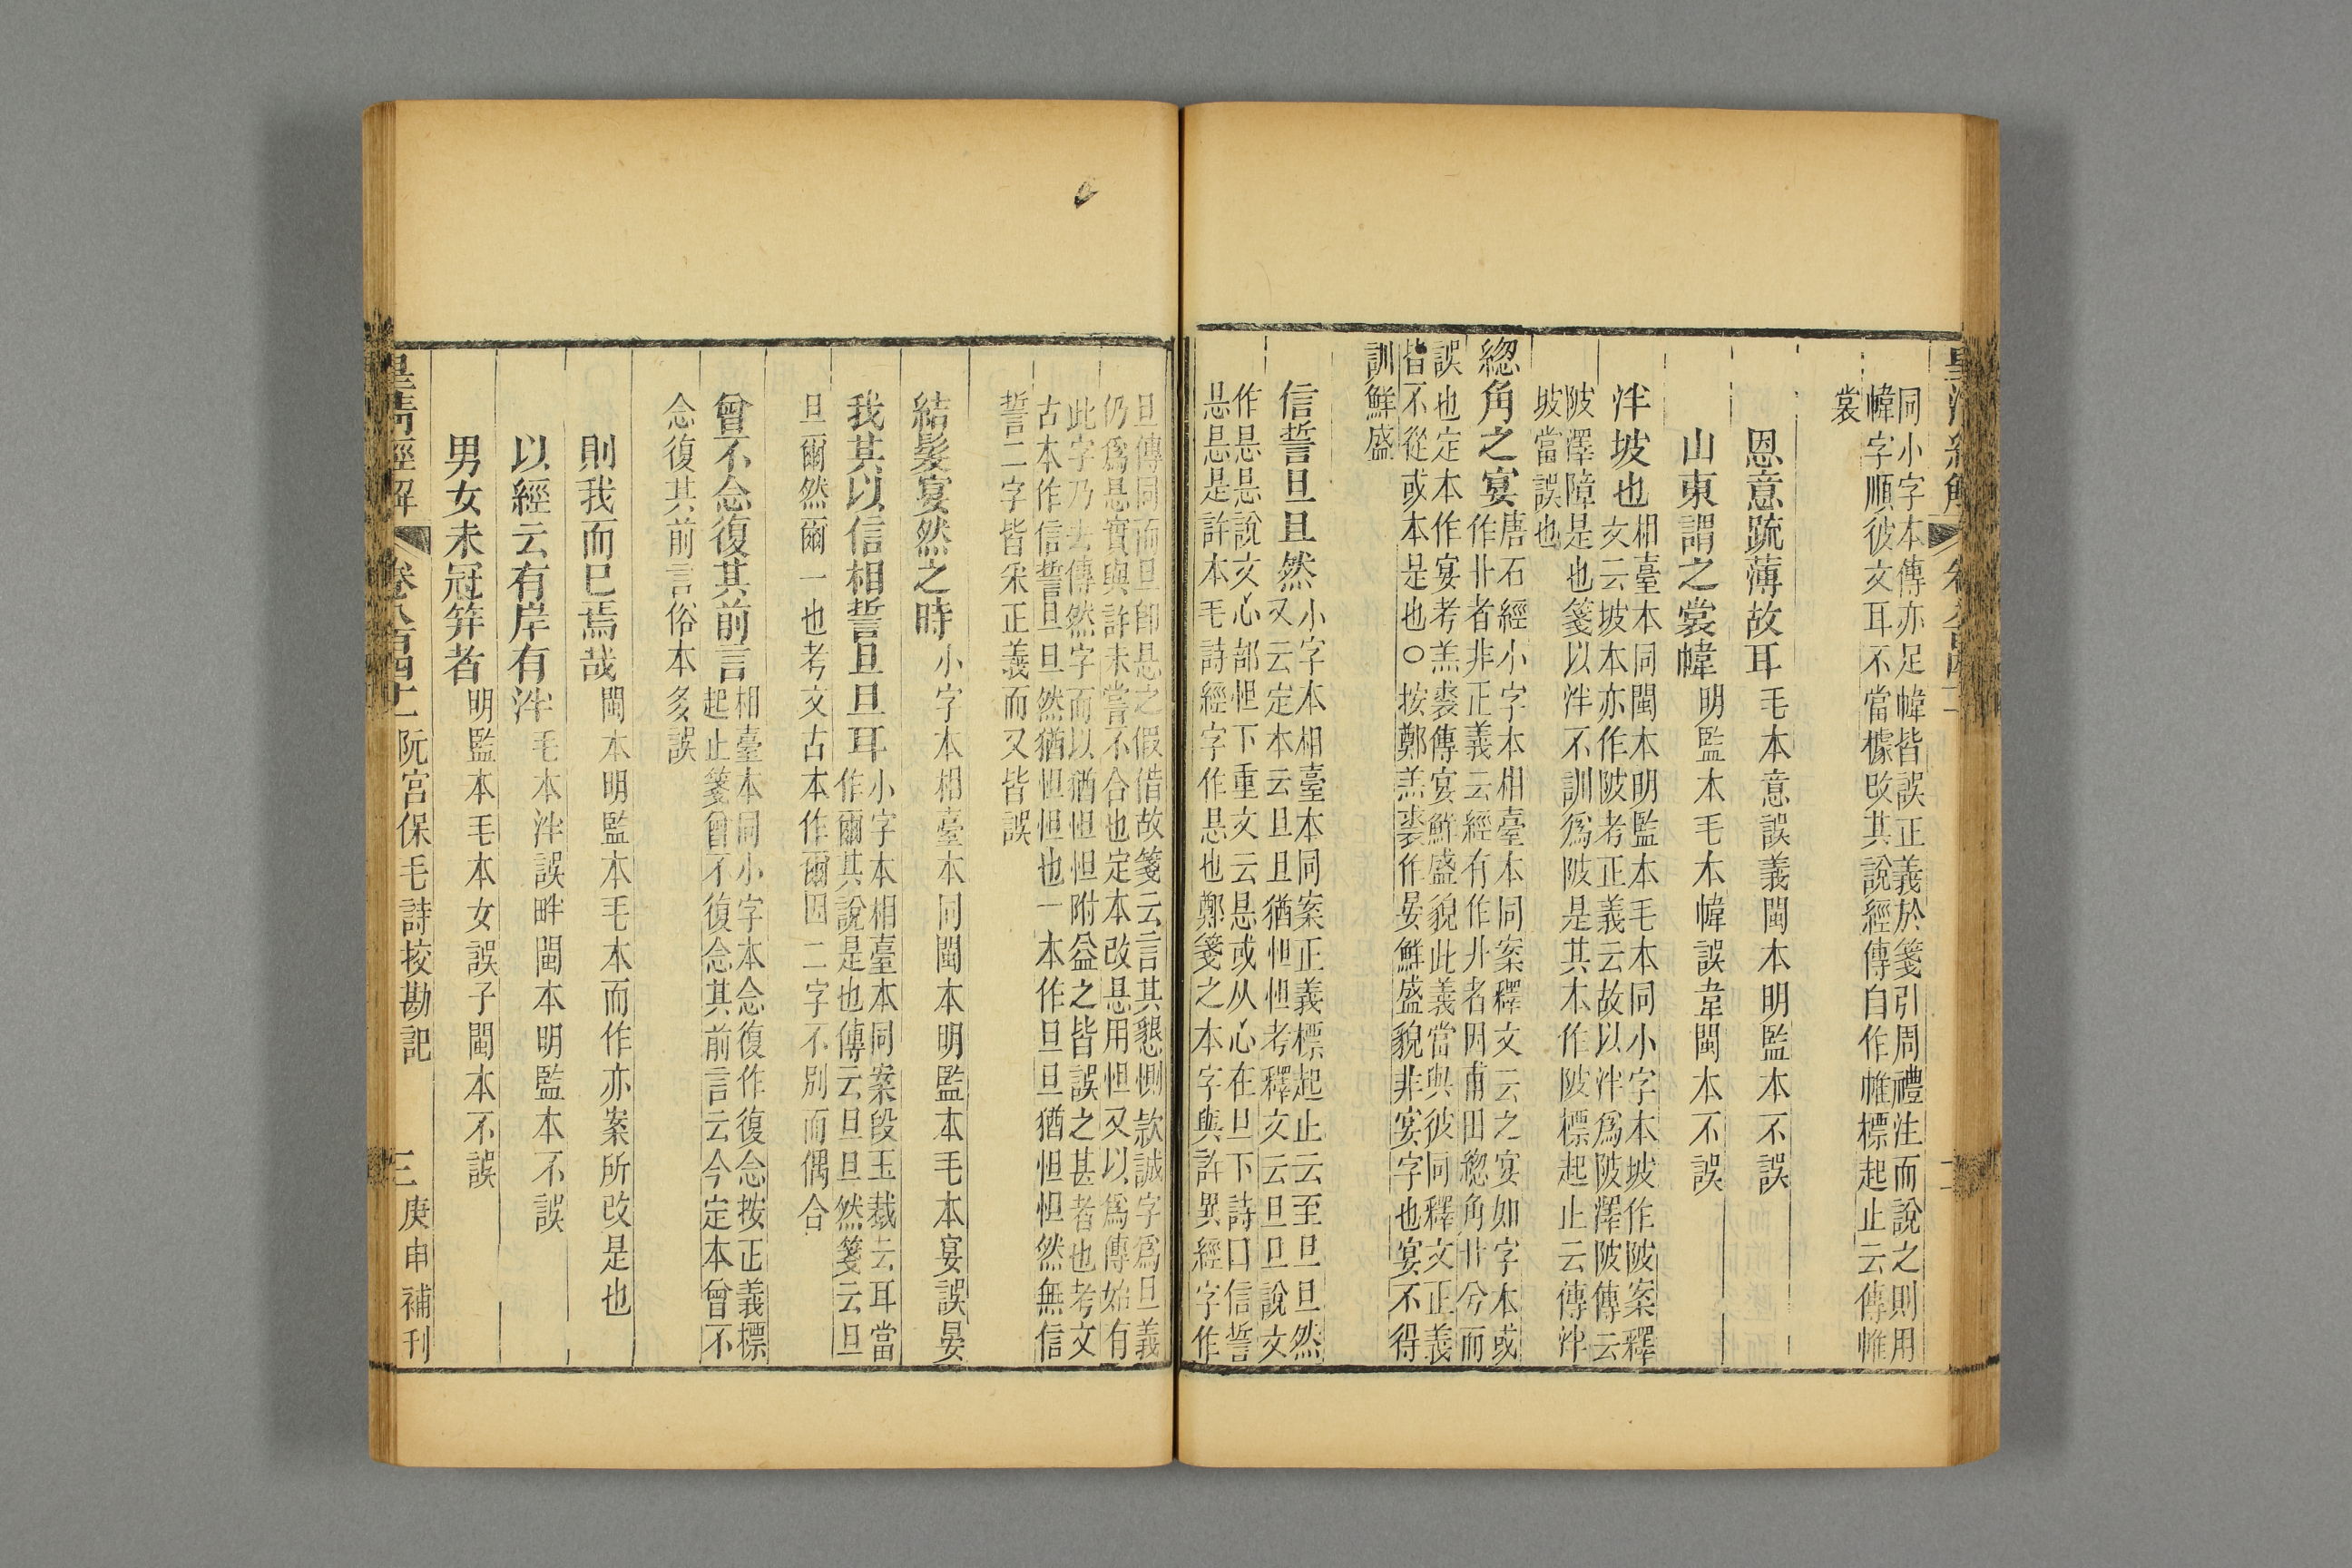 同小字本傳亦足幃皆誤正義於箋引周禮注而說之則用
幃字順彼文耳不當據改其說經傳自作帷標起止云傳帷
裳
恩意疏薄故耳毛本意誤義閩本明監本不誤
山東謂之裳幃明監本毛本幃誤韋閩本不誤
泮坡也相臺本同閩本明監本毛本同小字本坡作陂案釋
文云坡本亦作陂考正義云故以泮爲陂澤陂傳云
陂澤障是也箋以泮不訓爲陂是其本作陂標起止云傳泮
坡當誤也
緫角之宴唐石經小字本相臺本同案釋文云之宴如字本或
作丱者非正義云經有作丱者因甫田緫角丱兮而
誤也定本作宴考羔裘傳宴鮮盛貌此義當與彼同釋文正義
皆不從或本是也○按鄭羔裘作晏鮮盛貌非宴字也宴不得
訓鮮盛
信誓旦旦然小字本相臺本同案正義標起止云至旦旦然
又云定本云旦旦猶怛怛考釋文云旦旦說文
作悬悬說文心部怛下重文云悬或从心在旦下詩曰信誓
悬悬是許本毛詩經字作悬也鄭箋之本字與許異經字作
旦傳同而旦卽悬之假借故箋云言其懇惻款誠字爲旦義
仍爲悬實與許未嘗不合也定本改悬用怛又以爲傳始有
此字乃去傳然字而以猶怛怛附益之皆誤之甚者也考文
古本作信誓旦旦然猶怛怛也一本作旦旦猶怛怛然無信
誓二字皆采正義而又皆誤
結髮宴然之時小字本相臺本同閩本明監本毛本宴誤晏
我其以信相誓旦旦耳小字本相臺本同案段玉裁云耳當
作爾其說是也傳云旦旦然箋云旦
旦爾然爾一也考文古本作爾因二字不別而偶合
曾不念復其前言相臺本同小字本念復作復念按正義標
起止箋曾不復念其前言云今定本曾不
念復其前言俗本多誤
則我而已焉哉閩本明監本毛本而作亦案所改是也
以經云有岸有泮毛本泮誤畔閩本明監本不誤
男女未冠笄者明監本毛本女誤子閩本不誤
皇清經解 卷八百四十二 阮宮保毛詩挍勘記 三 庚申補刊